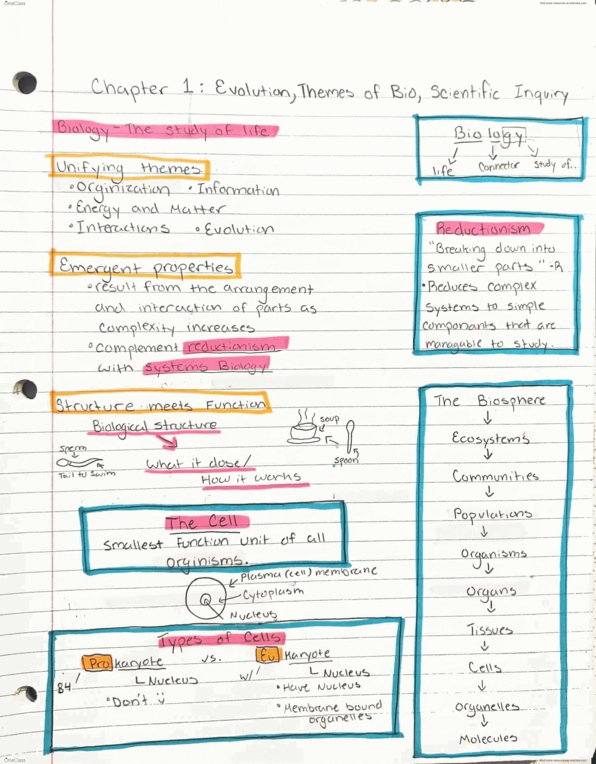 OneClass
find more resources at oneclass.com
Chapter 1: Evolution, Themes of Bio, Scientific Inquiry
Biology - The study of life
Biology
life connector study of..
Unifying themes
• Orginization • Information
• Energy and Matter
• Interactions • Evolution
Reductionism
"Breaking down into
smaller parts" -R
• Reduces complex
systems to simple
componants that are
managable to study.
Emergent properties
• result from the arrangement
and interaction of parts as
complexity increases
• Complement reductionism
with Systems Biology
Structure meets Function
Biological structure
soup
spoon
Sperm
Tail to Swim
What it dose/
How it works
The Cell
Smallest Function unit of all
orginisms.
Plasma (cell) membrane
Cytoplasm
Nucleus
Types of Cells
Prokaryote vs. Eukaryote
B4 Nucleus w/ Nucleus
• Don't • Have Nucleus
• Membrane bound
organelles
The Biosphere
Ecosystems
Communities
Populations
Organisms
Organs
Tissues
Cells
Organelles
Molecules
OneClass
find more resources at oneclass.com